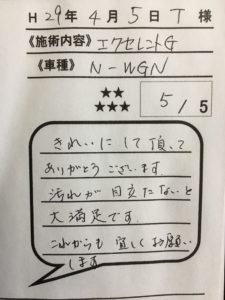 H29年4月5日 T 様
《施術内容》エクセレントG
《車種》 N-WGN
★★
★★★
5/5
きれいにして頂いて
ありがとうございます
汚れが目立たないと
大満足です。
これからも宜しくお願い
します